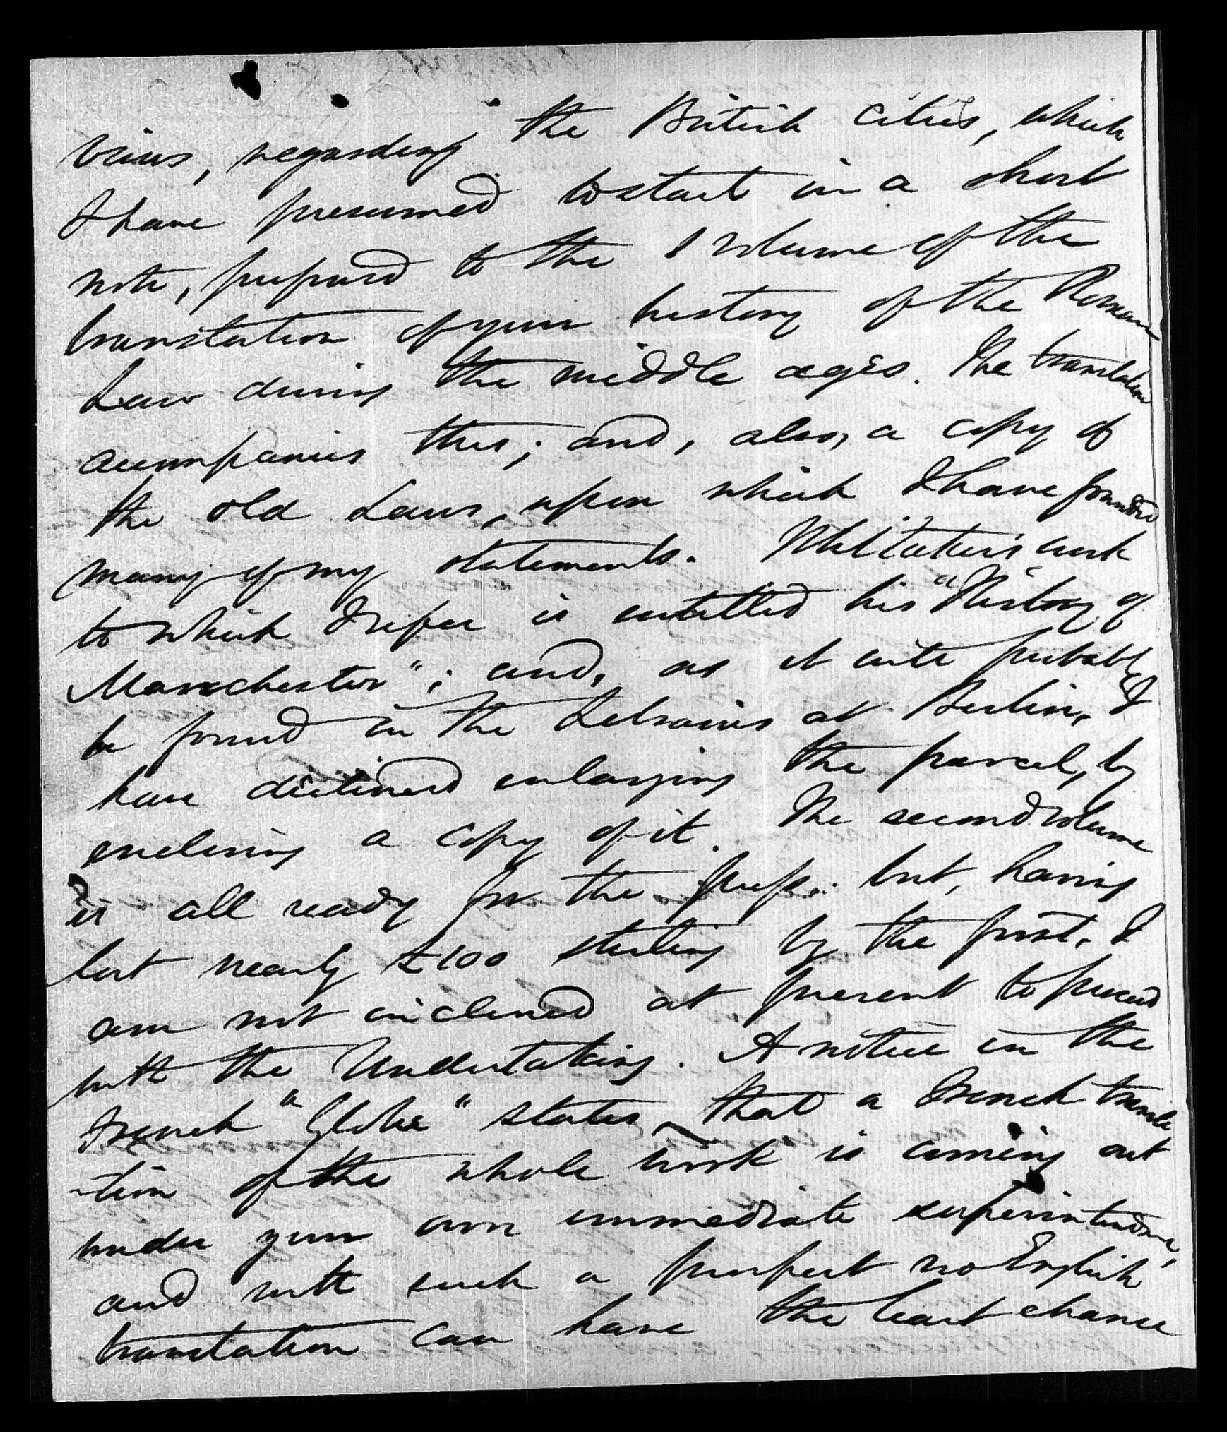 views, regarding the British cities, which
I have presumed to start in a short
note, prefixed to the 1 volume of the
translation of your history of the Roman
Law during the middle ages. The translation
accompanies this; and, also, a copy of
the old Laws, upon which I have founded
many of my statements. Whitaker's work
to which I refer is entitled his "History of
Manchester"; and, as it will probably
be found in the Libraries at Berlin, I
have declined enlarging the parcel, by
enclosing a copy of it. The second volume
is all ready for the press: but, having
lost nearly £100 sterling by the first, I
am not inclined at present to proceed
with the Undertaking. A notice in the
French "Globe" states, that a French transla
-tion of the whole work is coming out
under your own immediate superintendence,
and with such a prospect no English
translation can have the least chance